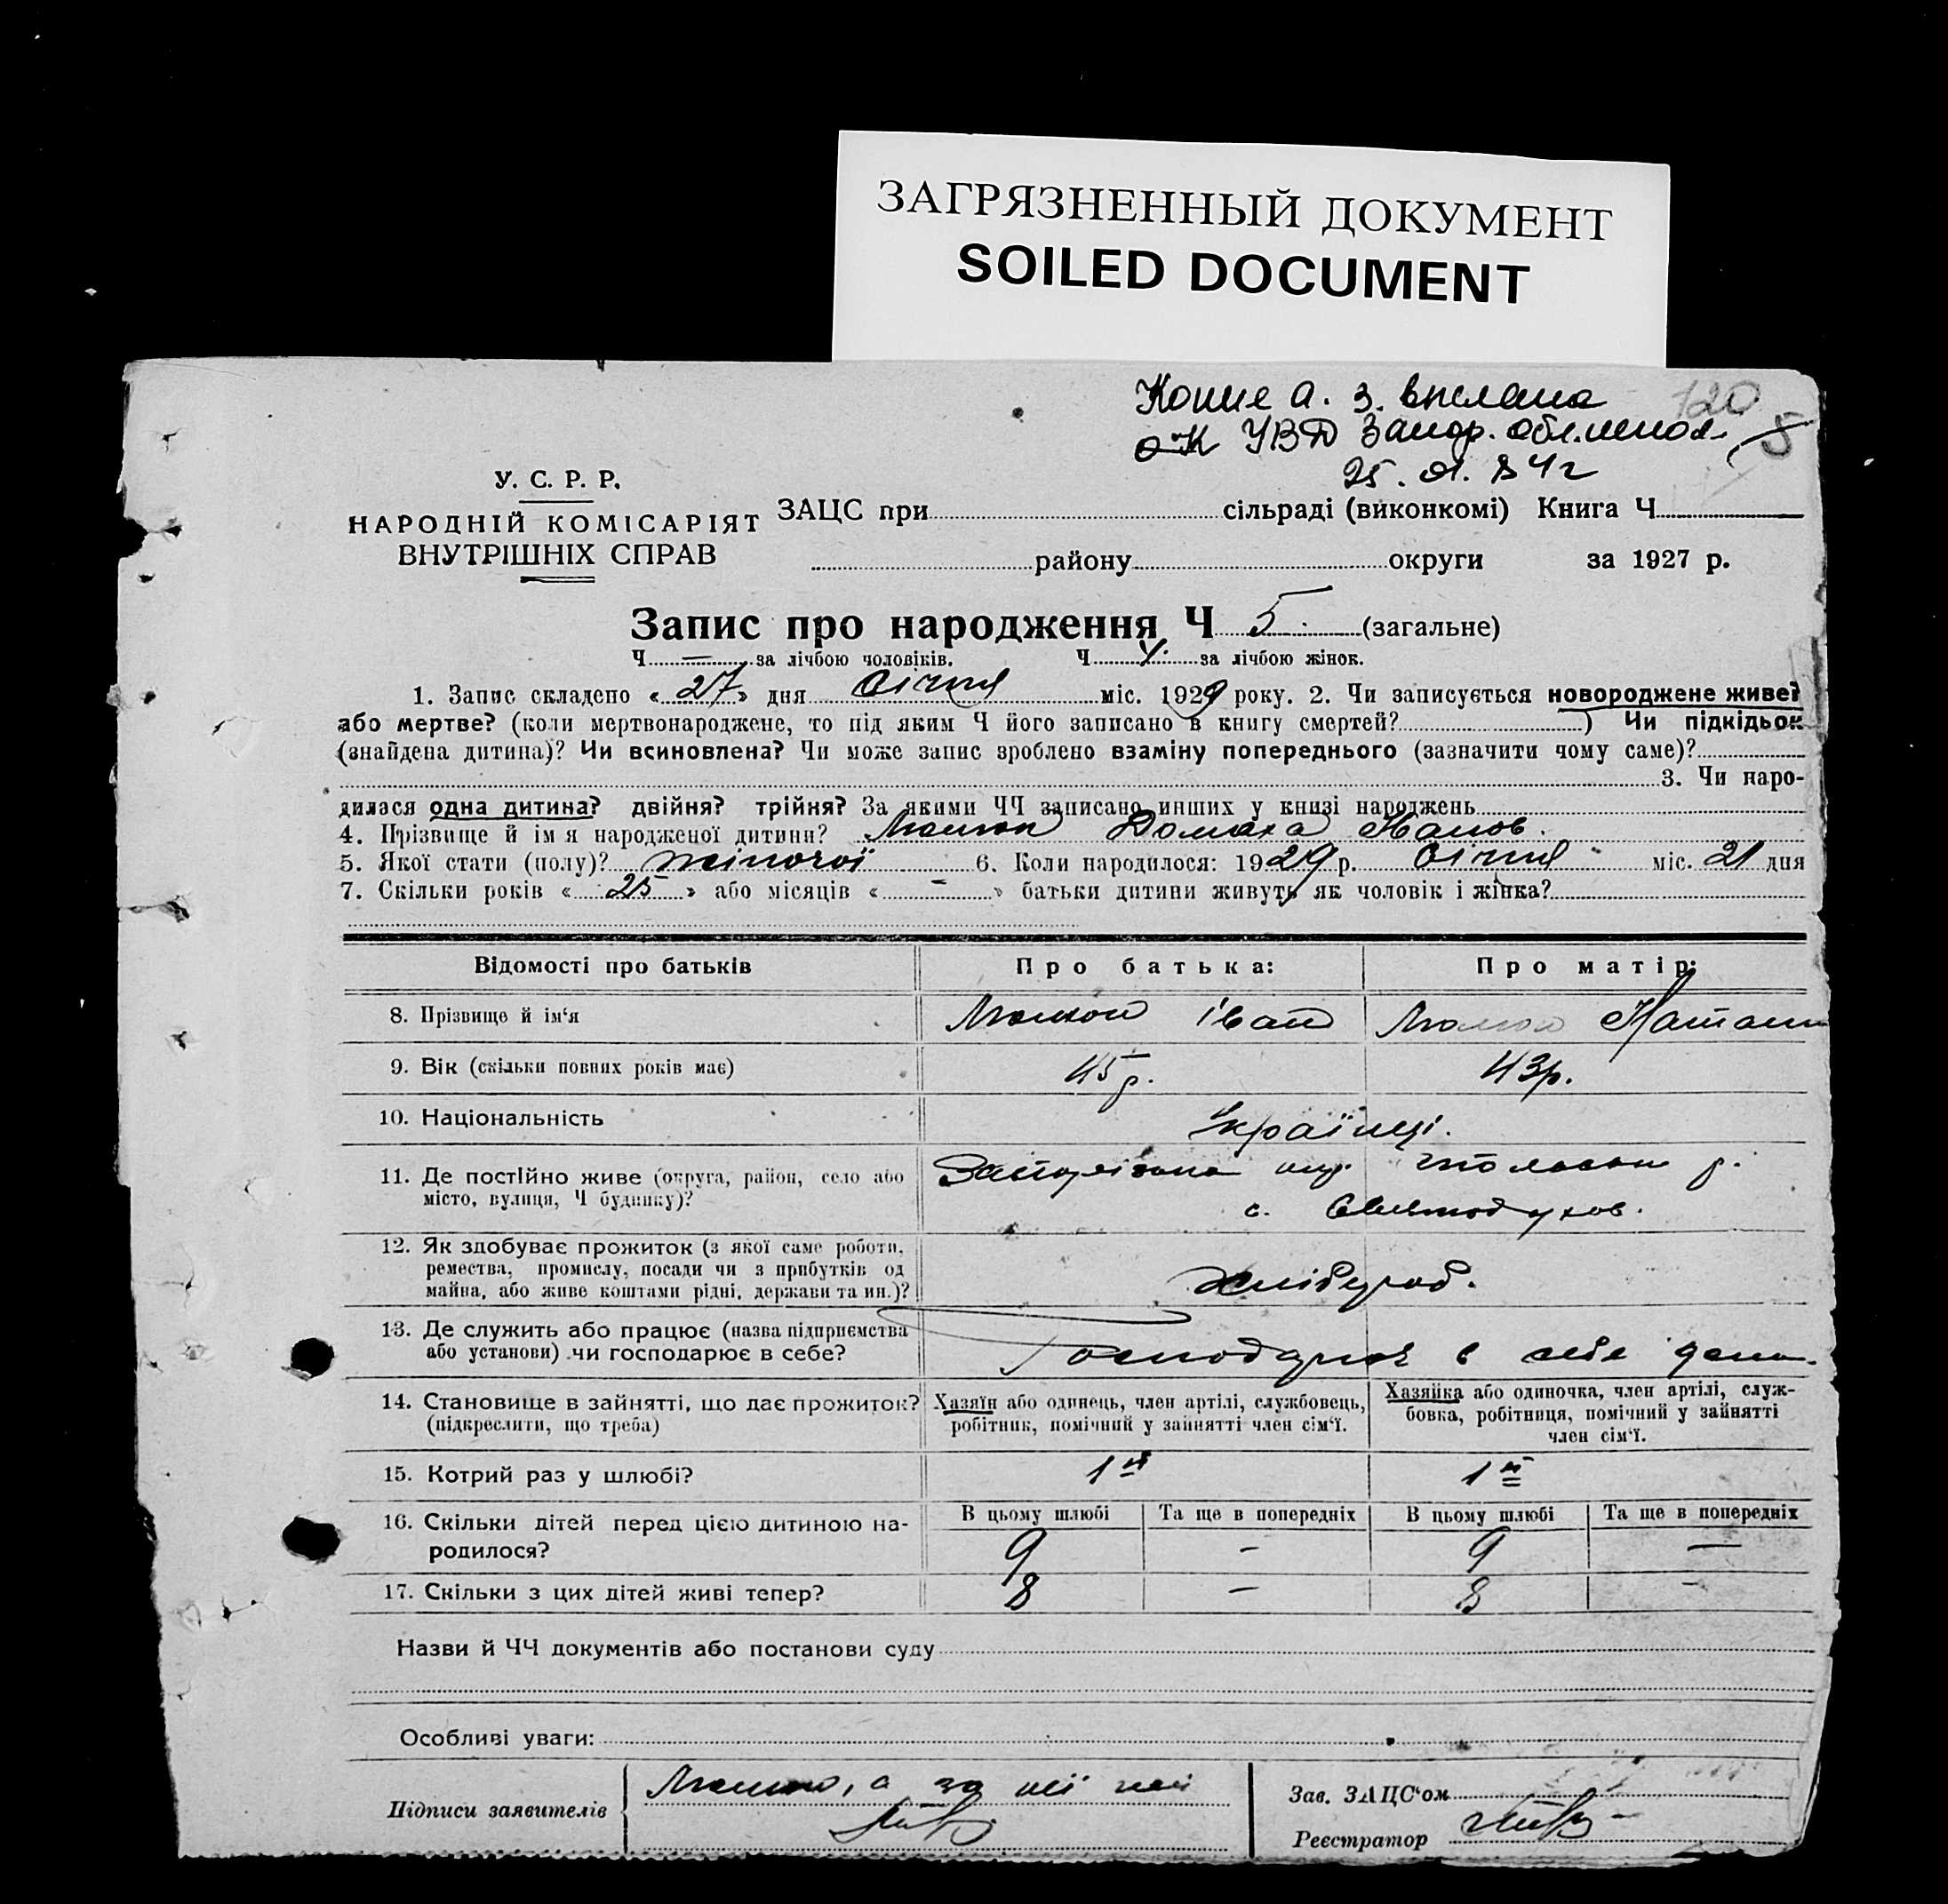 ЗАГРЯЗНЕННЫЙ ДОКУМЕНТ
SOILED DOCUMENT
120
Копие а. з. выслана
ОК УВД Запор. облисполк. 5
25. 84 г
У. С. Р. Р.
НАРОДНІЙ КОМІСАРІЯТ
ВНУТРІШНІХ СПРАВ
ЗАЦС при сільраді (виконкомі) Книга Ч
району округи за 1927 р.
Запис про народження Ч 5 (загальне)
Ч — за лічбою чоловіків. Ч за лічбою жінок.
1. Запис складено « 27 » дня Січня міс. 1929 року. 2. Чи записується новороджене живе?
або мертве? (коли мертвонароджене, то під яким Ч його записано в книгу смертей? ) Чи підкідьок
(знайдена дитина)? Чи всиновлена? Чи може запис зроблено взаміну попереднього (зазначити чому саме)?
3. Чи наро-
дилася одна дитина? двійня? трійня? За якими ЧЧ записано инших у книзі народжень
4. Прізвище й імя народженої дитини? Домаха Іванов.
5. Якої стати (полу)? жіночої 6. Коли народилося: 1929 р. Січня міс. 21 дня
7. Скільки років « 25 » або місяців « - » батьки дитини живуть як чоловік і жінка?
Відомості про батьків Про батька: Про матір:
8. Прізвище й ім‘я Іван
9. Вік (скільки повних років має) 45 р. 43 р.
10. Національність Українці.
11. Де постійно живе (округа, район, село або
місто, вулиця, Ч будинку)?
с.
12. Як здобуває прожиток (з якої саме роботи,
ремества, промислу, посади чи з прибутків од
майна, або живе коштами рідні, держави та ин.)? Хлібороб.
13. Де служить або працює (назва підприємства
або установи) чи господарює в себе? в себе дома.
14. Становище в зайнятті, що дає прожиток?
(підкреслити, що треба)
Хазяїн або одинець, член артілі, службовець,
робітник, помічний у зайнятті член сім‘ї.
Хазяйка або одиночка, член артілі, служ-
бовка, робітниця, помічний у зайнятті
член сім‘ї.
15. Котрий раз у шлюбі? 1й 1й
16. Скільки дітей перед цією дитиною на-
родилося?
В цьому шлюбі Та ще в попередніх В цьому шлюбі Та ще в попередніх
9 - 9 —
17. Скільки з цих дітей живі тепер? 8 — 8 -
Назви й ЧЧ документів або постанови суду
Особливі уваги:
Підписи заявителів
Зав. ЗАЦС‘ом
Реєстратор